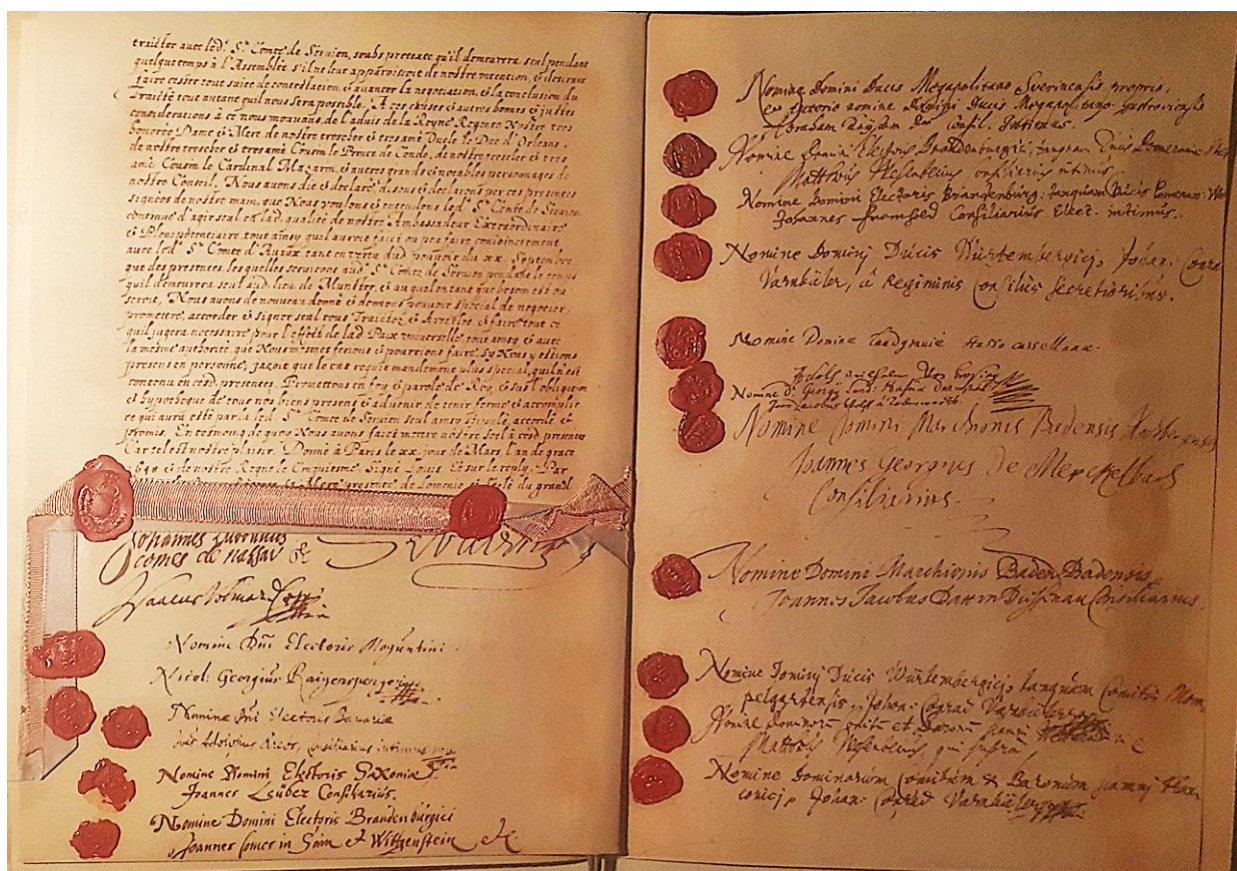 traitter avec led. Sr. Comte de Servien, soubs pretexte qu'il demeurera seul pendant
quelque temps à l'Assemblée s'il ne leur apparoissoit de nostre intention, & desirans
faire cesser tout suiet de contestation, & avancer la negociation, & la conclusion du
Traitté tout autant qu'il nous sera possible. A ces causes & autres bonnes & justes
considerations à ce nous mouvans, de l'aduis de la Reyne Regente Nostre tres
honorée Dame & Mere de nostre trescher & tresamé Oncle le Duc d'Orleans,
de nostre trescher & tresamé Cousin le Prince de Condé, de nostre trescher & tres
amé Cousin le Cardinal Mazarin, & autres grands & notables personnages de
nostre Conseil, Nous avons dit & declaré, disons & declarons par ces presentes
signées de nostre main, que Nous voulons & entendons led. Sr. Comte de Servien
continue d'agir seul en lad. qualité de nostre Ambassadeur Extraordinaire
& Plenipotentiaire, tout ainsy qu'il auroit faict ou peu faire conjoinctement
avec led. Sr. Comte d'Avaux tant en vertu dud. pouvoir du xx. Septembre
que des presentes, lesquelles serviront aud. Sr. Comte de Servien pendant le temps
qu'il demeurera seul aud. lieu de Munster, & au quel en tant que besoin est ou
seroit, Nous avons de nouveau donné & donnons pouvoir special de negocier,
promettre, accorder & signer seul tous Traittez & Articles, & faire tout ce
qu'il jugera necessaire pour l'effect de lad. Paix universelle, tout ainsy & avec
la mesme authorité, que Nous mesmes ferions & pourrions faire, sy Nous y estions
presens en personne, jaçoit que le cas requit mandement plus special, qu'il n'est
contenu en cesd. presentes. Promettons en foy & parole de Roy, & sous l'obligation
& hypotheque de tous nos biens presens & aduenir de tenir ferme & accomplir
ce qui aura esté par led. Sr. Comte de Servien seul ainsy stipulé, accordé &
promis. En tesmoing de quoy Nous avons faict mettre nostre seel à cesd. presentes
Car tel est nostre plaisir. Donné à Paris le xx. jour de Mars, l'an de grace
1648 & de nostre Regne le Cinquiesme. Signé Louis. Et sur le reply. Par
Mere presente de Lomenie & seellé du grand
Johannes Ludovicus
comes de Nassau
Servien
Isaacus Volmar
Nomine Dni Electoris Moguntini.
Nicol: Georgius Raigersperger
Nomine Dni Electoris Bavariæ
Joh: Adolphus Krebs, consiliarius intimus
Nomine Domini Electoris Saxoniæ
Joannes Leuber Consiliarius.
Nomine Domini Electoris Brandenburgici
Joannes Comes in Sain et Wittgenstein
Nomine Domini Ducis Megapolitano Suerinensis proprio,
et tutorio nomine Ducis Megapolitano Gustroviensis
Abraham Consil. Intimus.
Nomine Domini Electoris Brandenburgici, tanquam Ducis Pomeraniæ
Matthæus Wesenbecius consiliarius intimus
Nomine Domini Electoris Brandenburg: tanquam Ducis Pomeran:
Johannes Fromhold Consiliarius Elect. intimus.
Nomine Dominj Ducis Würtembergicj, Johan: Conrad
Varnbüler, à Regiminis Consiliis secretioribus.
Nomine Dominæ Landgraviæ Hasso cassellanæ.
Nomine D. Georg Land. Hassiæ
Nomine Domini Marchionis Badensis
Joannes Georgius de Merckelbach
Consiliarius
Nomine Domini Marchionis Baden Badensis
Joannes Jacobus Consiliarius
Nomine Dominj Ducis Würtembergicj, tanquam Comitis Mom
pelgardensis, Johan: Conrad Varnbüler
Nomine Dominorum
Matthæus Wesenbecius qui supra
Nomine Dominorum Comitum & Baronum scamni Fran
conicj, Johan: Conrad Varnbüler